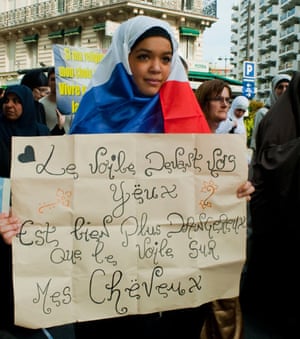 Le Voile Devant Vos
Yeux
Est bien Plus Dangereux
Que le Voile sur
Mes Cheveux
P